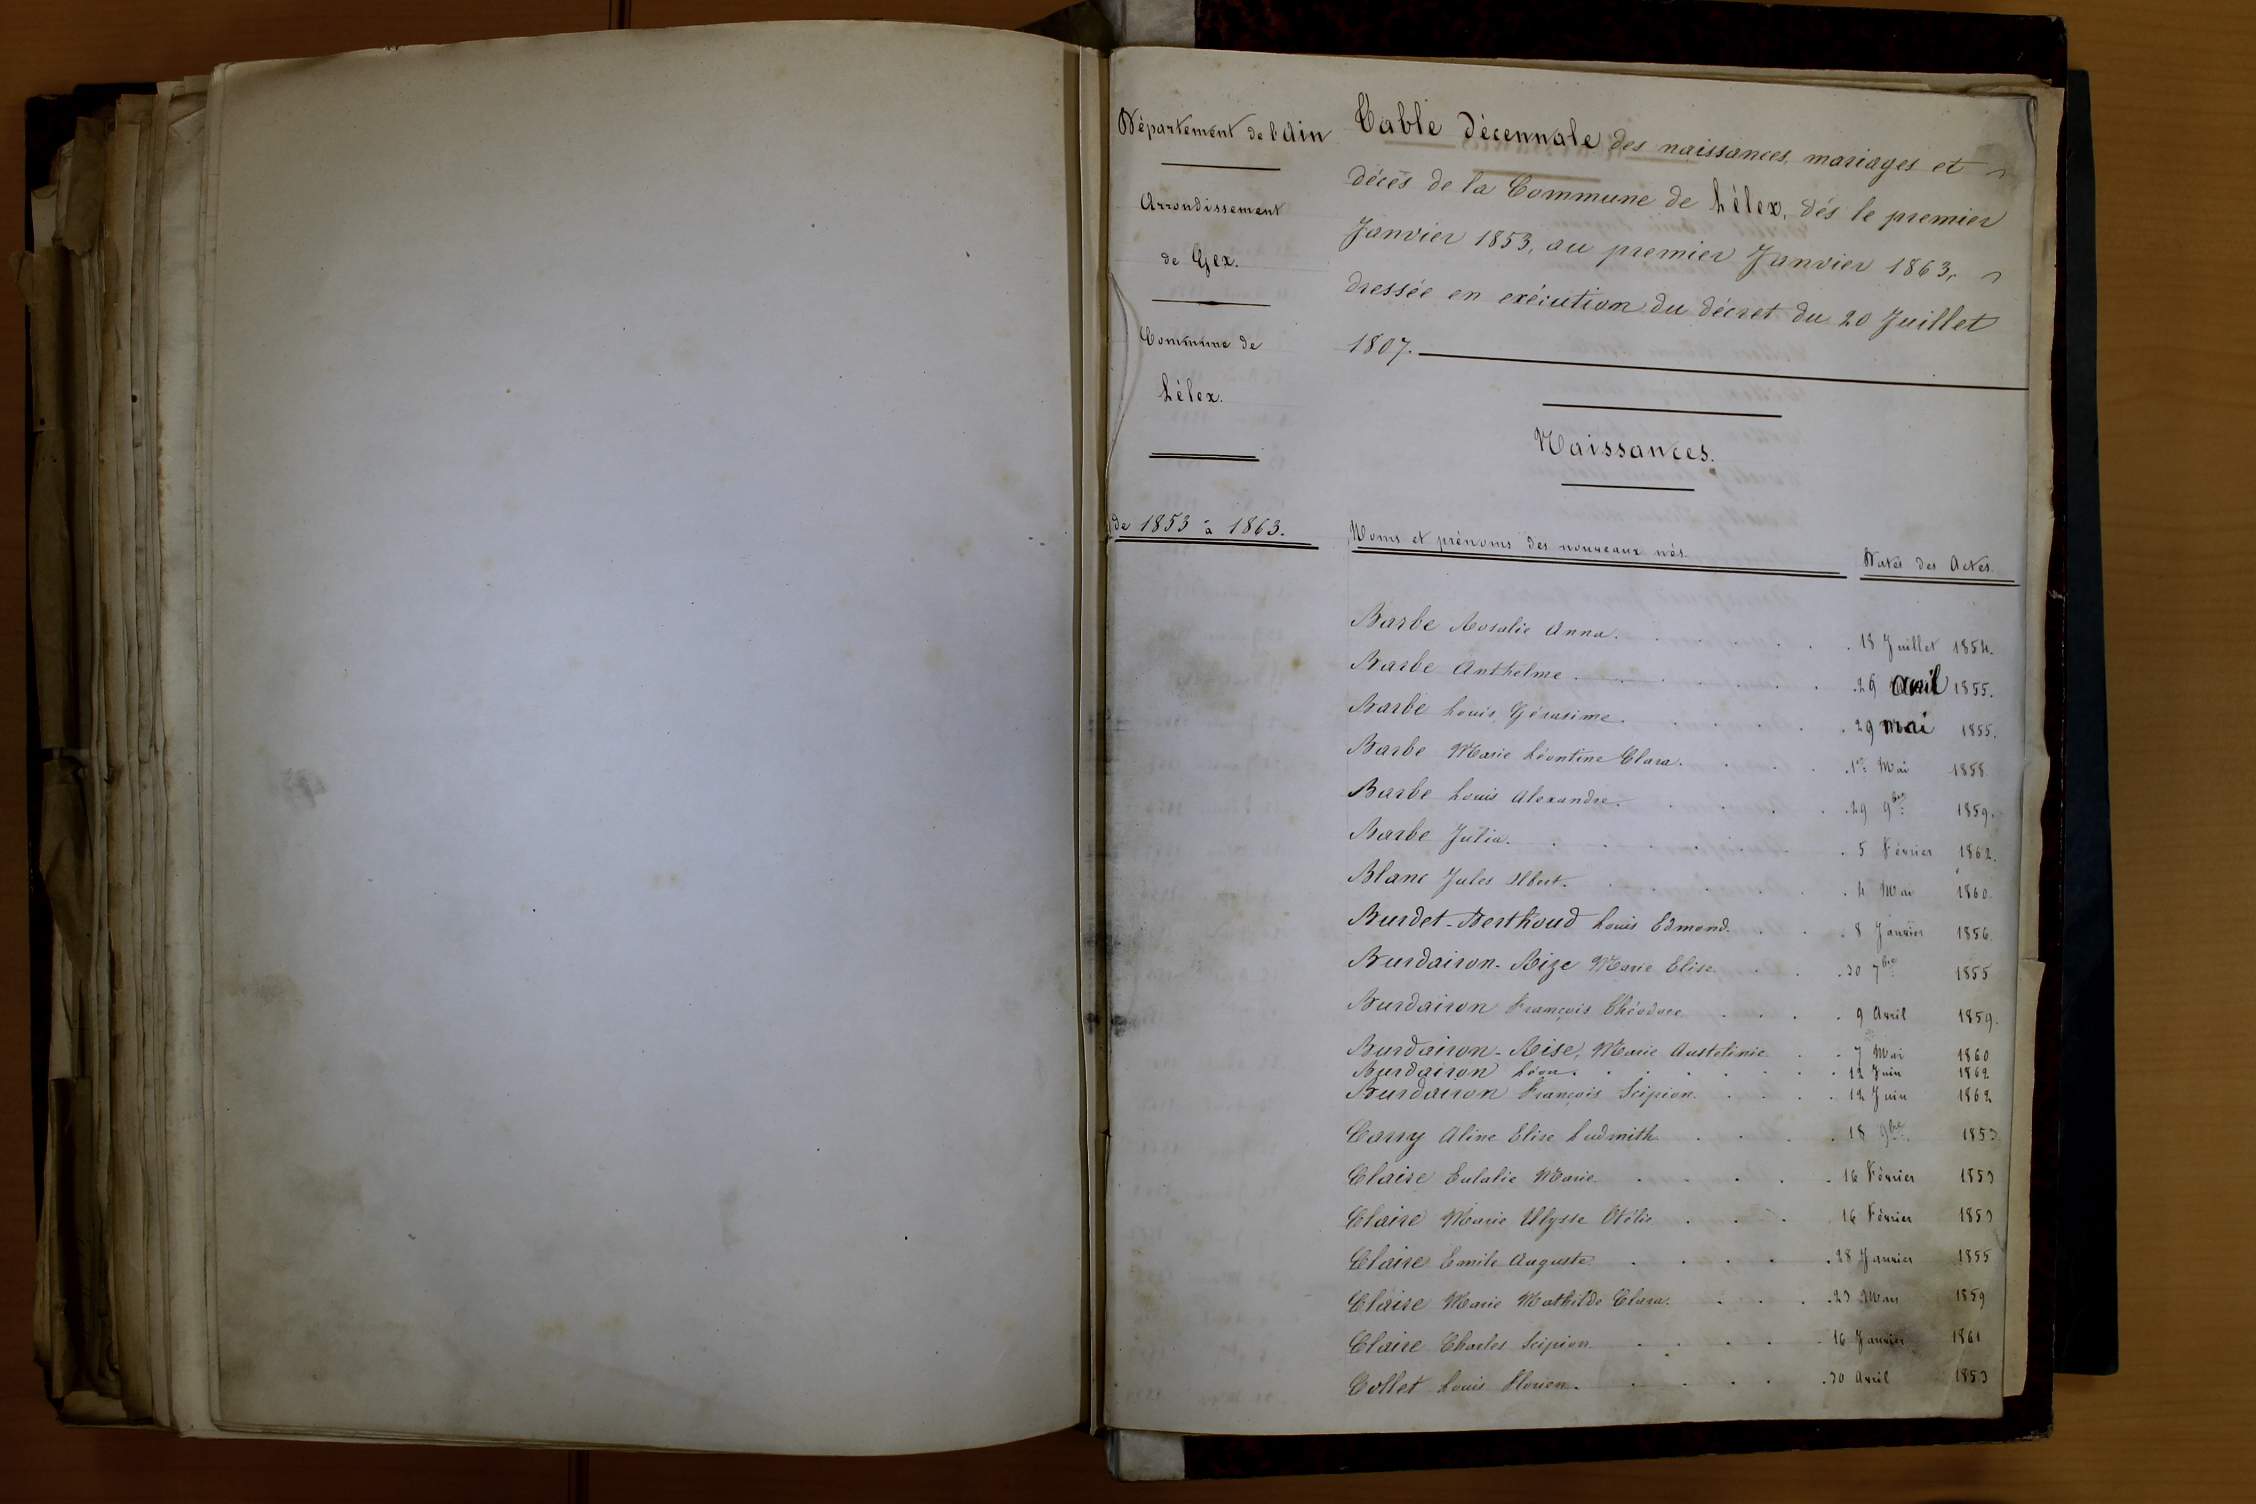 Département de l'Ain
Arrondissement
de Gex.
Commune de
Lélex.
de 1853 à 1863.
Table décennale des naissances, mariages et
décès de la Commune de Lélex, dés le premier
Janvier 1853, au premier Janvier 1863,
dressée en exécution du décret du 20 Juillet
1807.
Naissances.
Noms et prénoms des nouveaux nés. Dates des Actes.
Barbe Rosalie Anna. 18 Juillet 1854.
Barbe Anthelme 29 avril 1855.
Barbe Louis Gérasime. 29 mai 1855.
Barbe Marie Léontine Clara. 1er Mai 1858
Barbe Louis Alexandre. 29 9bre 1859.
Barbe Julia. 5 Février 1862.
Blanc Jules Albert. 4 Mai 1860.
Burdet-Berthoud Louis Edmond. 8 Janvier 1856.
Burdairon-Rize Marie Elise 30 7bre 1855
Burdairon François Théodore 9 Avril 1859.
Burdairon-Rise, Marie Austelinie 7 Mai 1860
Burdairon Léon. 12 Juin 1862
Burdairon François Scipion. 12 Juin 1862
Carry Aline Elise Ludmith 18 9bre 1853
Claire Eulalie Marie 16 Février 1853
Claire Marie Ulysse Otélie 16 Février 1853
Claire Emile Auguste 28 Janvier 1855
Claire Marie Mathilde Clara. 23 Mars 1859
Claire Charles Scipion 16 Janvier 1861
Collet Louis Florien. 30 Avril 1853